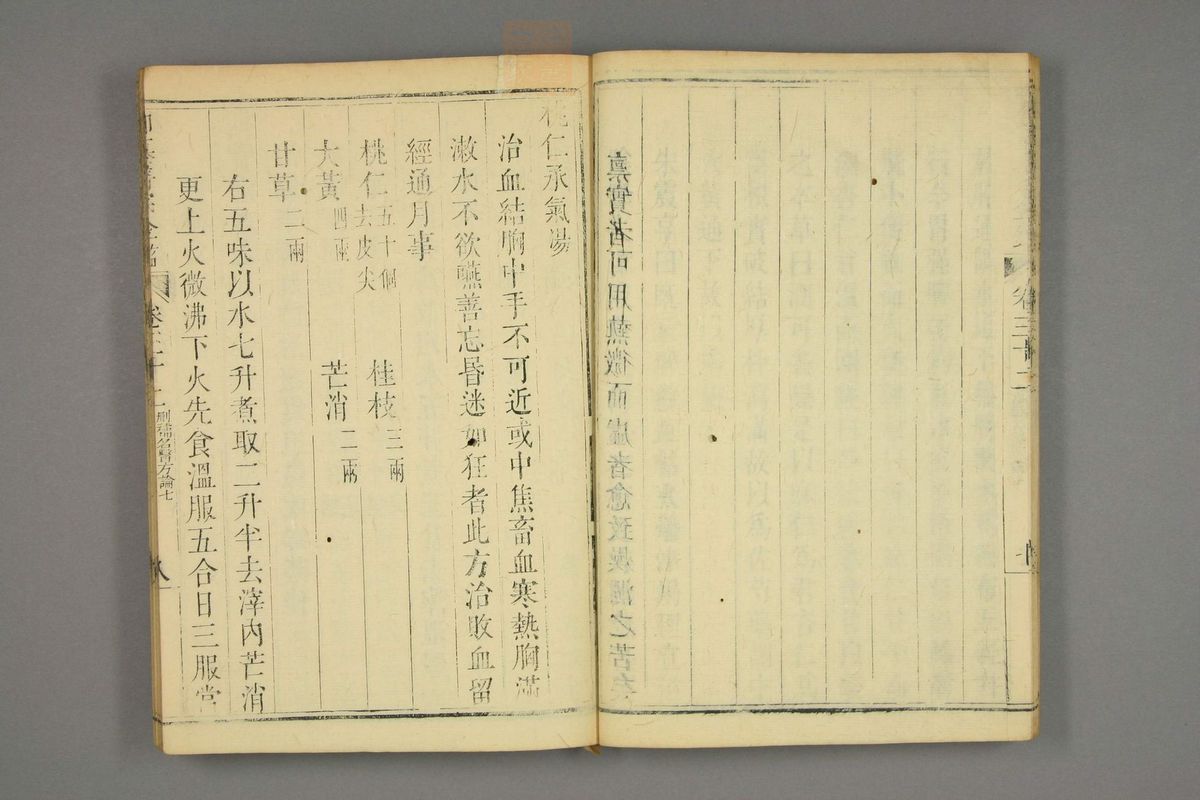 卷三十二
稟實者可用熱微而虛者愈致燥涸之苦矣
桃仁承氣湯
治血結胸中手不可近或中焦畜血寒熱胸滿
漱水不欲嚥善忘昏迷如狂者此方治敗血留
經通月事
桃仁五十個去皮尖 桂枝三兩
大黃四兩 芒消二兩
甘草二兩
右五味以水七升煮取二升半去滓內芒消
更上火微沸下火先食溫服五合日三服當
刪補名醫方論七
八